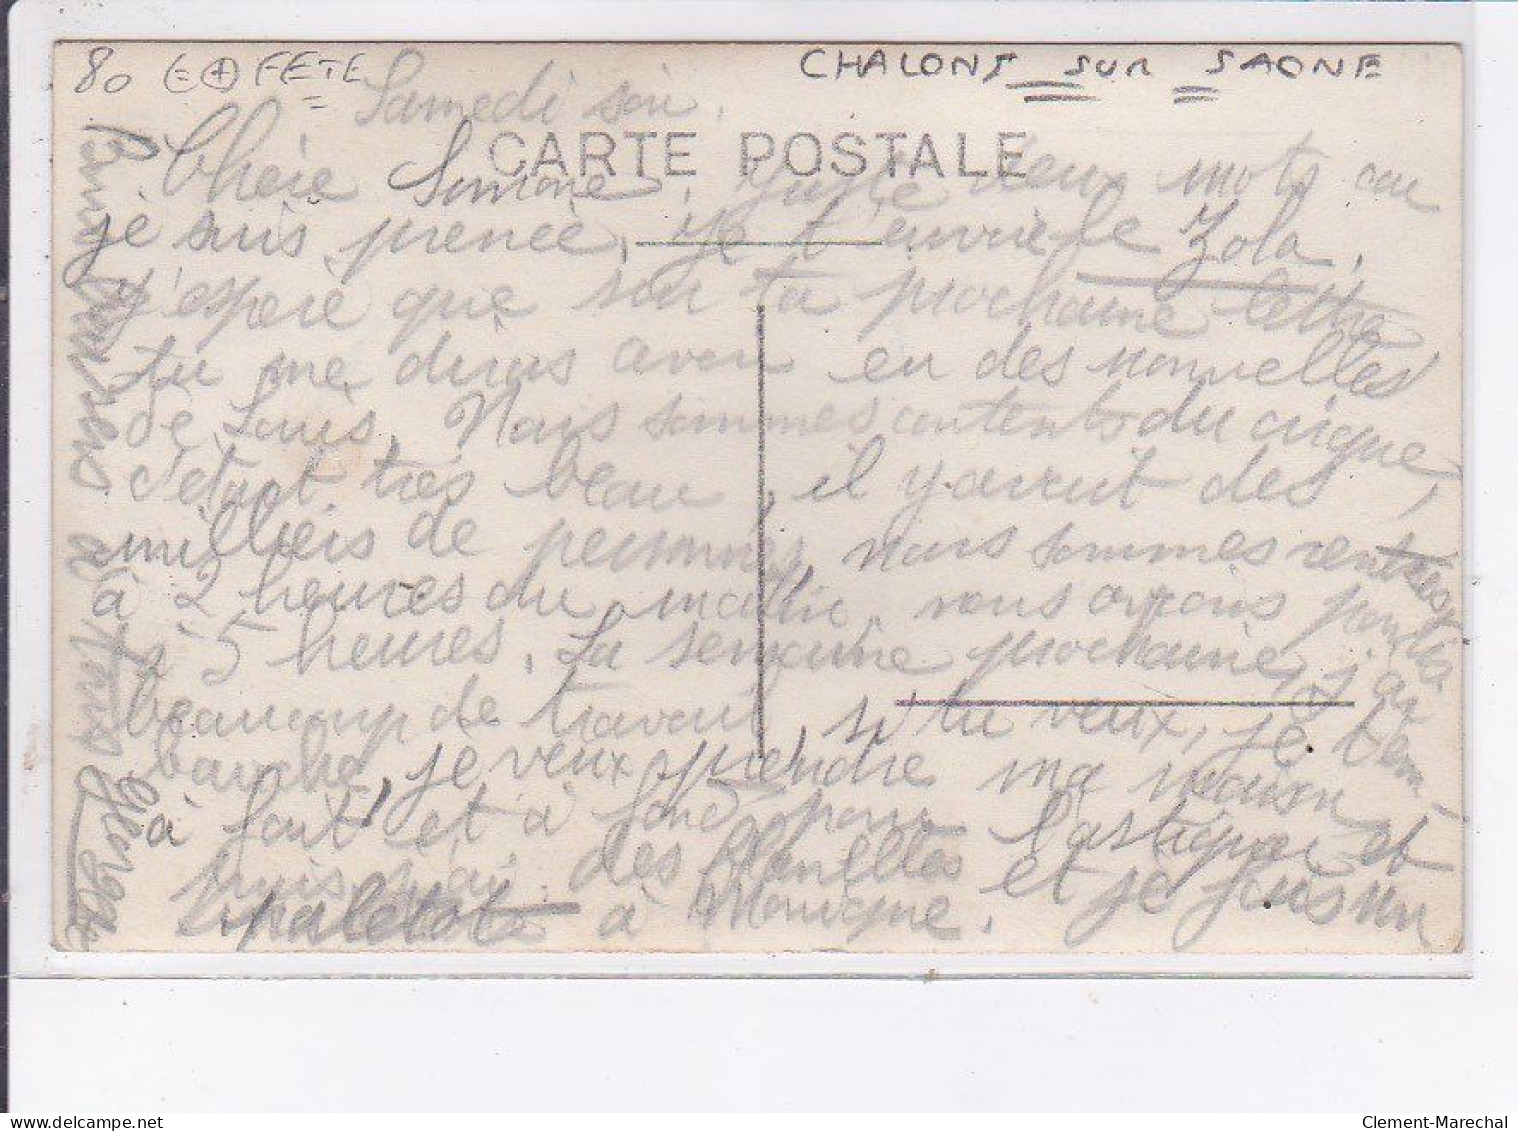 80 FETE CHALONS SUR SAONE
Samedi soir.
CARTE POSTALE
Chère Simone, Juste deux mots car
je suis pressée, Je t'envoie le Zola,
J'espère que sur ta prochaine lettre
tu me diras avoir eu des nouvelles
de Louis. Nous sommes contents du cirque,
c'était très beau, il y avait des
milliers de personnes, nous sommes rentrés
à 2 heures du matin, nous avions
à 5 heures. La semaine prochaine, j'ai
beaucoup de travail, si tu veux, je t'em-
bauche, je veux prendre ma maison
à fond et à fond pour l'astiquer et
puis j'ai des flanelles et je fais un
paletot à Monique.
Bons baisers à tous Georgette
Clement-Marechal